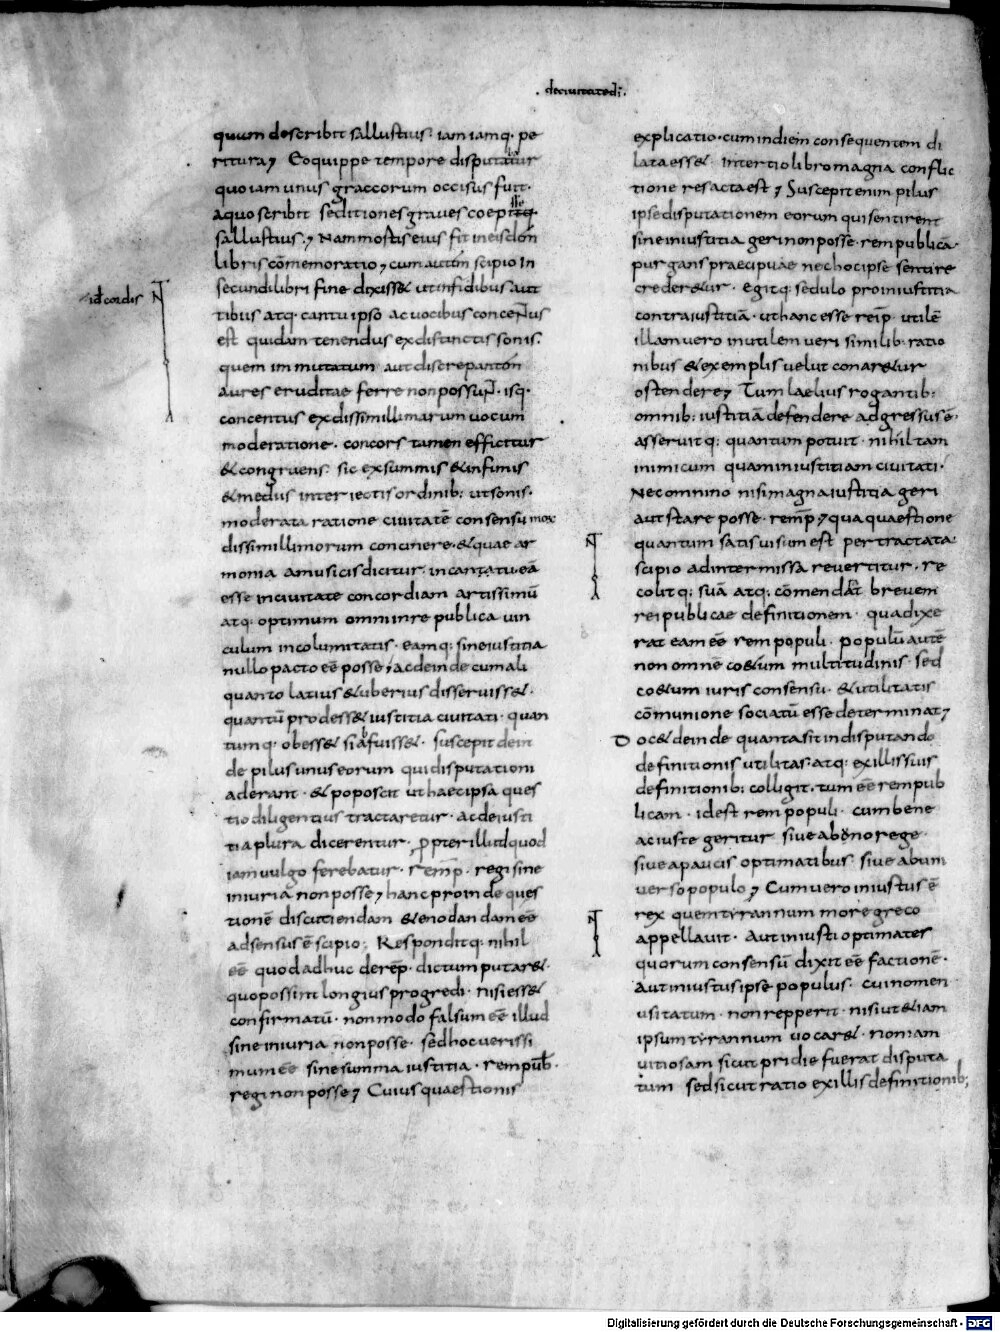 · deciuitated̄i ·
quum describit sallustius · iam iamq· pe
ritura⁊ Eo quippe tempore disputatur
quo iam unus graccorum occisus fuit ·
a quo scribit seditiones graues coepisse
sallustius ·⁊ Nam mortis eius fit in eisdēm
libris cōmemoratio⁊ cum autem scipio in
secundi libri fine dixiss& ut in fidibus aut
id cordis
tibiis atq· cantu ipso ac uocibus concentus
est quidam tenendus ex distinctis sonis ·
quem immutatum aut discrepantem
aures eruditae ferre non possunt · isq·
concentus ex dissimillimarum uocum
moderatione · concors tamen efficitur
& congruens · sic ex summis & infimis
& mediis interiectis ordinib: ut sonis ·
moderata ratione ciuitatē consensu mox
dissimillimorum concinere · & quae ar
monia a musicis dicitur · in cantatu eā
esse in ciuitate concordiam artissimū
atq· optimum omni in re publica uin
culum incolumitatis · eamq: sine iustitia
nullo pacto eē posse⁊ ac deinde cum ali
quanto latius & uberius disseruiss& ·
quantū prodess& iustitia ciuitati · quan
tumq· obess& si afuiss& · suscepit dein
de pilus unus eorum qui disputationi
aderant · & poposcit ut haec ipsa ques
tio diligentius tractaretur · ac de iusti
tia plura dicerentur · propter illud quod
iam uulgo ferebatur · remp̄ · regi sine
iniuria non posse⁊ hanc proinde ques
tionē discutiendam & enodandam eē
adsensus ē scipio · Responditq: nihil
eē quod adhuc de rep̄ · dictum putar& ·
quo possint longius progredi · nisi ess&
confirmatū · non modo falsum eē illud
sine iniuria non posse · sed hoc uerissi
mum eē sine summa iustitia · rem publ̄ ·
regi non posse⁊ Cuius quaestionis
explicatio · cum in diem consequentem di
lata ess& · In tertio libro magna conflic
tione res acta est⁊ Suscepit enim pilus
ipse disputationem eorum qui sentirent
sine iniustitia geri non posse · rem publicā
purgans praecipuae ne hoc ipse sentire
creder&ur · egitq· sedulo pro iniustitia
contra iustitiā · ut hanc esse reip̄ · utilē
illam uero inutilem ueri similib· ratio
nibus & exemplis uelut conar&ur
ostendere⁊ Tum laelius rogantib:
omnib: iustitiā defendere adgressus ē ·
asseruitq: quantum potuit · nihil tam
inimicum quam iniustitiam ciuitati ·
Nec omnino nisi magna iustitia geri
aut stare posse · remp̄⁊ qua quaestione
quantum satis uisum est pertractata ·
scipio ad intermissa reuertitur · re
colitq: suā atq: cōmendat breuem
rei publicae definitionem · qua dixe
rat eam eē rem populi · populū autē
non omnē co&um multitudinis · sed
co&um iuris consensu · & utilitatis
cōmunione sociatū esse determinat⁊
Doc& deinde quanta sit in disputando
definitionis utilitas · atq: ex illis suis
definitionib: colligit · tum eē rem pub
licam · id est rem populi · cum bene
ac iuste geritur siue ab uno rege ·
siue a paucis optimatibus · siue ab uni
uerso populo⁊ Cum uero iniustus ē
rex quem tyrannum more greco
appellauit · Aut iniusti optimates
quorum consensū dixit eē factionē ·
Aut iniustus ipse populus · cui nomen
usitatum · non repperit · nisi ut &iam
ipsum tyrannum uocar& · non iam
uitiosam sicut pridie fuerat disputa
tum sed sicut ratio ex illis definitionib;
Digitalisierung gefördert durch die Deutsche Forschungsgemeinschaft · DFG